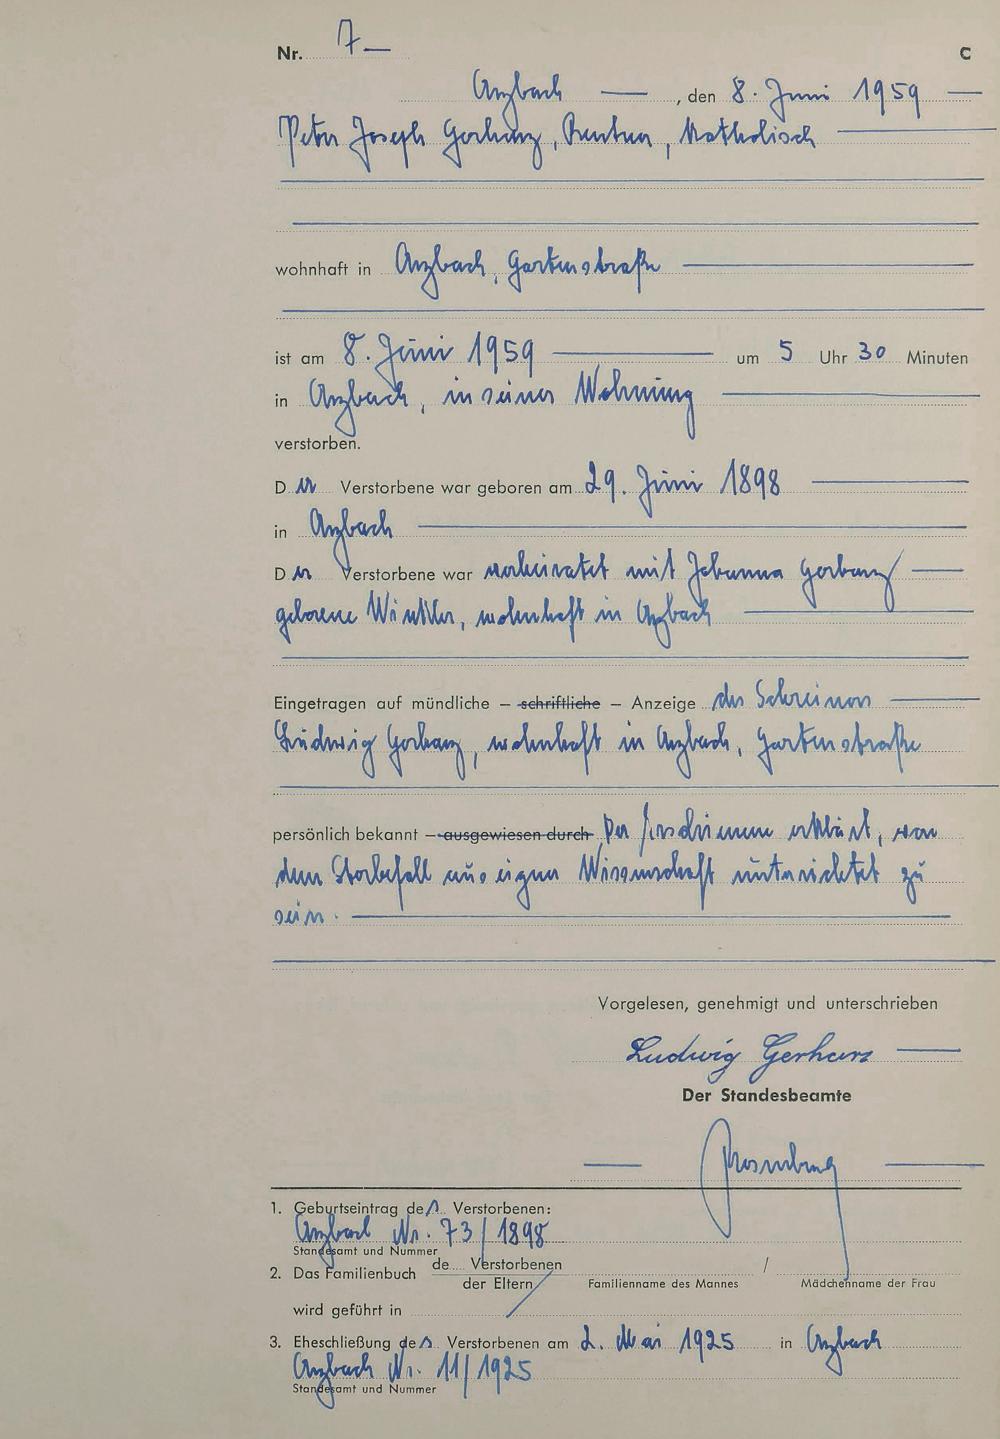 Nr. 7 C
Arzbach, den 8. Juni 1959
Peter Joseph Gerharz, Rentner, Katholisch
wohnhaft in Arzbach, Gartenstraße
ist am 8. Juni 1959 um 5 Uhr 30 Minuten
in Arzbach, in seiner Wohnung
verstorben.
Der Verstorbene war geboren am 29. Juni 1898
in Arzbach
Der Verstorbene war verheiratet mit Johanna Gerharz
geborene Winkler, wohnhaft in Arzbach
Eingetragen auf mündliche – schriftliche – Anzeige des Schreiners
Ludwig Gerharz, wohnhaft in Arzbach, Gartenstraße
persönlich bekannt – ausgewiesen durch Der Erschienene erklärt, von
dem Sterbefall aus eigner Wissenschaft unterrichtet zu
sein.
Vorgelesen, genehmigt und unterschrieben
Ludwig Gerharz
Der Standesbeamte
1. Geburtseintrag des Verstorbenen:
Arzbach Nr. 73/1898
Standesamt und Nummer
2. Das Familienbuch de Verstorbenen /
der Eltern Familienname des Mannes Mädchenname der Frau
wird geführt in
3. Eheschließung des Verstorbenen am 2. Mai 1925 in Arzbach
Arzbach Nr. 11/1925
Standesamt und Nummer